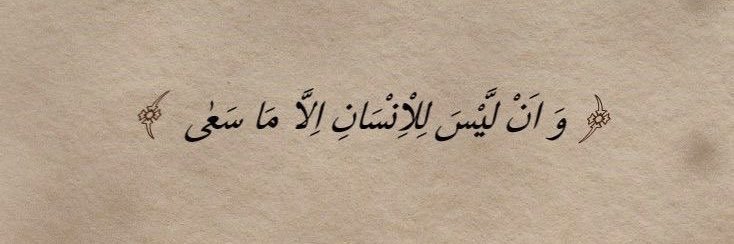 ﴿ وَ اَنْ لَّيْسَ لِلْاِنْسَانِ اِلَّا مَا سَعٰى ﴾